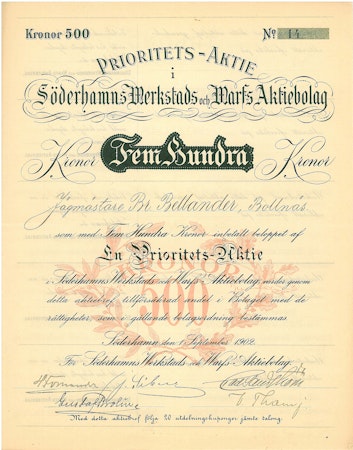 Kronor 500 No 14
PRIORITETS-AKTIE
i
Söderhamns Verkstads och Warfs Aktiebolag
Kronor Fem Hundra Kronor
Jägmästare Br Bellander, Bollnäs
som med Fem Hundra Kronor inbetalt beloppet af
En Prioritets-Aktie
i Söderhamns Verkstads och Warfs Aktiebolag, varder genom
detta aktiebref tillförsäkrad andel i Bolaget med de
rättigheter som i gällande bolagsordning bestämmas
Söderhamn den 1 September 1902.
För Söderhamns Verkstads och Warfs Aktiebolag
Med detta aktiebref följa 20 utdelningskuponger jämte talong.